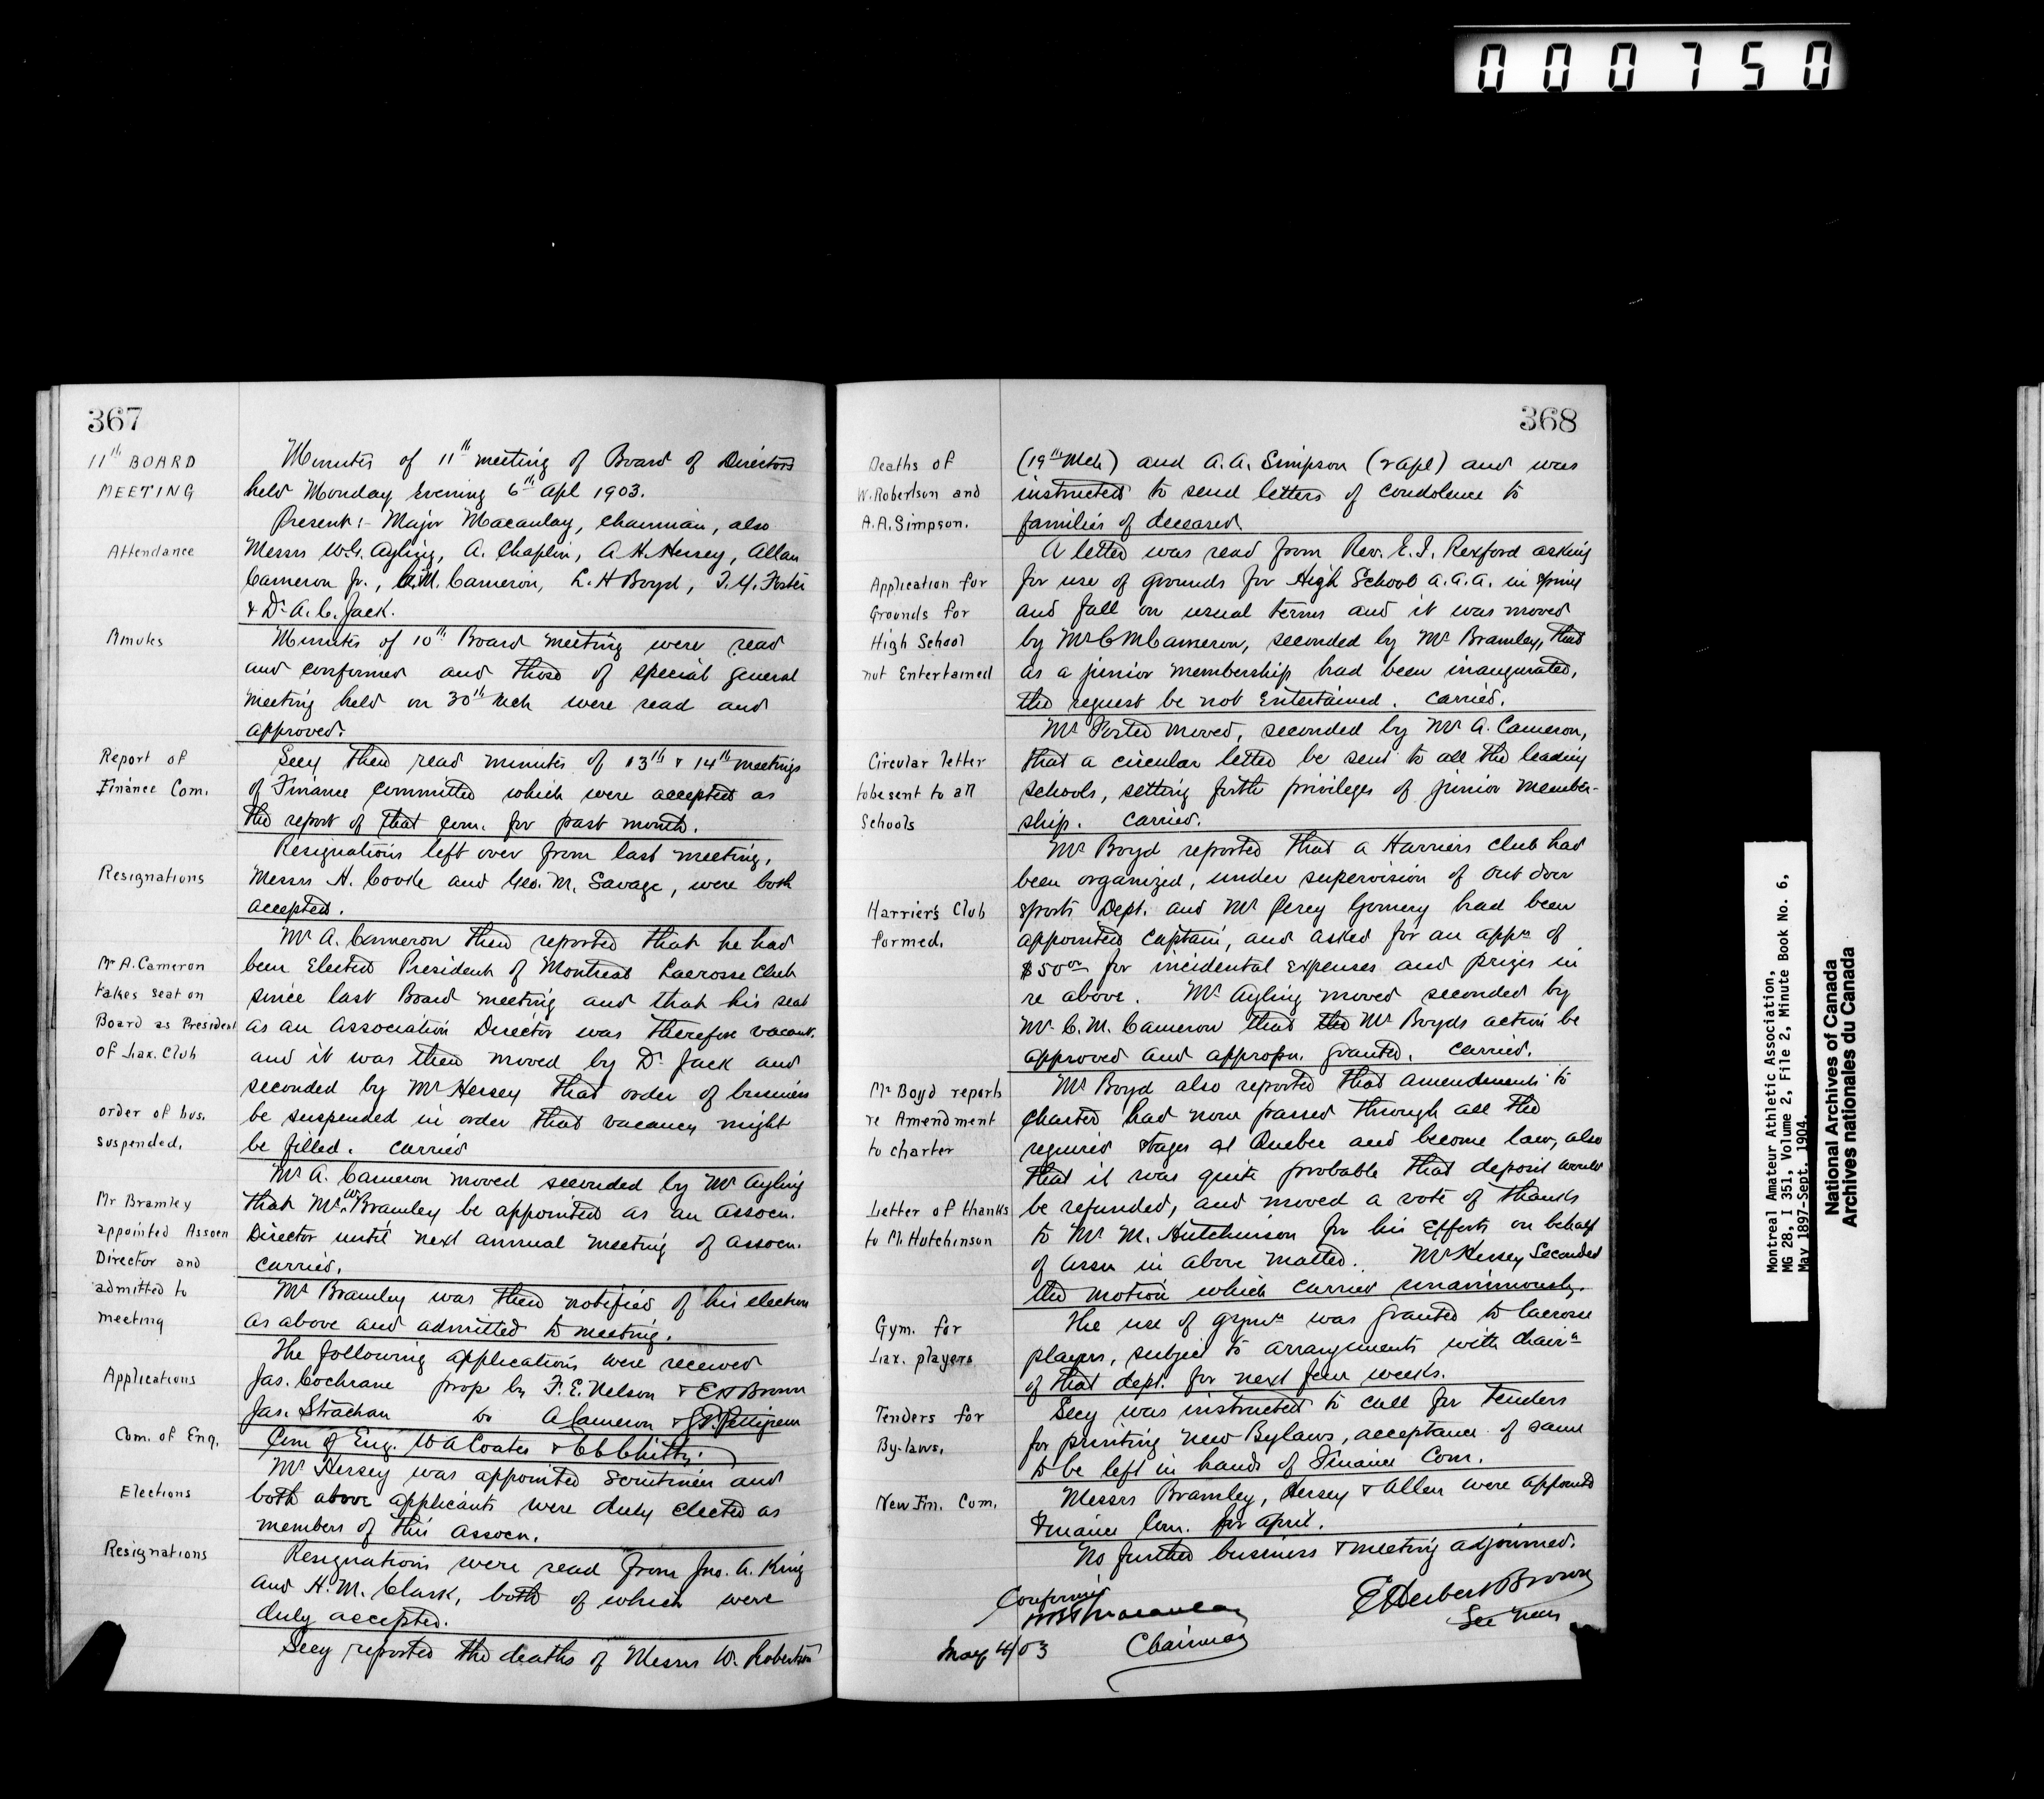 000750
367
11th BOARD
MEETING
Attendance
Minutes
Report of
Finance Com.
Resignations
Mr A. Cameron
takes seat on
Board as President
of Lax. Club
order of bus.
suspended.
Mr Bramley
appointed Assocn
Director and
admitted to
meeting
Applications
Com. of Enq.
Elections
Resignations
Minutes of 11th meeting of Board of Directors
held Monday Evening 6th Apl 1903.
Present:- Major Macaulay, Chairman, also
Messrs W.G. Ayling, A. Chaplin, A.H. Hersey, Allan
Cameron Jr., C.M. Cameron, L.H Boyd, T.Y. Foster
& Dr A.C. Jack.
Minutes of 10th Board meeting were read
and confirmed and those of special general
meeting held on 30th Mch were read and
approved.
Secy then read minutes of 13th & 14th meetings
of Finance Committee which were accepted as
the report of that Com. for past month.
Resignations left over from last meeting,
Messrs H. and Geo. M. Savage, were both
accepted.
Mr A. Cameron then reported that he had
been Elected President of Montreal Lacrosse Club
since last Board meeting and that his seat
as an Association Director was therefore vacant.
and it was then moved by Dr Jack and
seconded by Mr Hersey that order of business
be suspended in order that vacancy might
be filled. Carried
Mr A. Cameron moved seconded by Mr Ayling
that Mr Wm Bramley be appointed as an Assocn.
Director until next annual meeting of Assocn.
Carried.
Mr Bramley was then notified of his election
as above and admitted to meeting.
The following applications were received
Jas. Cochrane prop by F.E. Nelson & EH Brown
Jas. Strachan do A Cameron & Pettigrew
Com of Enq. W A Coates & Chitty.
Mr Hersey was appointed scrutineer and
both above applicants were duly elected as
members of this Assocn.
Resignations were read from Jno. A. King
and H.M. Clark, both of which were
duly accepted.
Secy reported the deaths of Messrs W. Robertson
368
Deaths of
W. Robertson and
A.A. Simpson.
Application for
Grounds for
High School
not Entertained
Circular letter
to be sent to all
Schools
Harrier's Club
formed.
Mr Boyd reports
re Amendment
to charter
Letter of thanks
to M. Hutchinson
Gym. for
Lax. players
Tenders for
By-laws.
New Fin. Com.
(19th Mch) and A.A. Simpson (2 Apl) and was
instructed to send letters of condolence to
families of deceased.
A letter was read from Rev. E.I. Rexford asking
for use of grounds for High School A.A.A. in spring
and fall on usual terms and it was moved
by Mr C M Cameron, seconded by Mr Bramley, that
as a junior membership had been inaugurated,
the request be not Entertained. Carried.
Mr Foster moved, seconded by Mr A. Cameron,
that a circular letter be sent to all the leading
schools, setting forth privileges of junior member-
ship. Carried.
Mr Boyd reported that a Harriers Club had
been organized, under supervision of out door
sports Dept. and Mr Percy Gomery had been
appointed Captain, and asked for an appn of
$50.00 for incidental expenses and prizes in
re above. Mr Ayling moved seconded by
Mr C.M. Cameron that the Mr Boyds action be
approved and appropn. granted. Carried.
Mr Boyd also reported that amendments to
Charter had now passed through all the
required stages at Quebec and become law, also
that it was quite probable that deposit would
be refunded, and moved a vote of thanks
to Mr M. Hutchinson for his Efforts on behalf
of Assn in above matter. Mr Hersey Seconded
the motion which carried unanimously.
The use of gymn was granted to lacrosse
players, subject to arrangements with Chairn
of that dept. for next few weeks.
Secy was instructed to call for tenders
for printing new Bylaws, acceptance of same
to be left in hands of Finance Com.
Messrs Bramley, Hersey & Allen were appointed
Finance Com. for April.
No further business & meeting adjourned.
Confirmed
Macaulay
Chairman
May 4/03
E Herbert Brown
Sec Treas
Montreal Amateur Athletic Association,
MG 28, I 351, Volume 2, File 2, Minute Book No. 6,
May 1897-Sept. 1904.
National Archives of Canada
Archives nationales du Canada